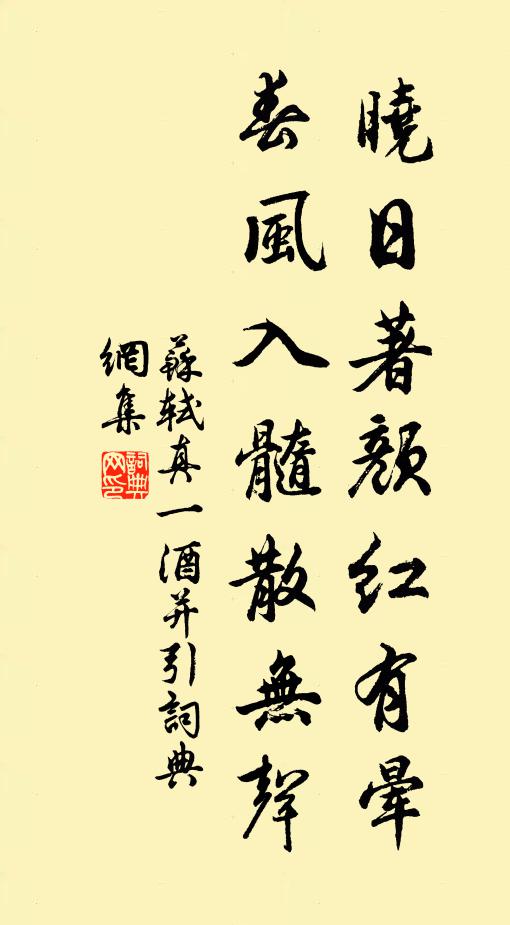 曉日著顏紅有暈
春風入髓散無聲
蘇軾真一酒并引詞典
網集
詞典
网印